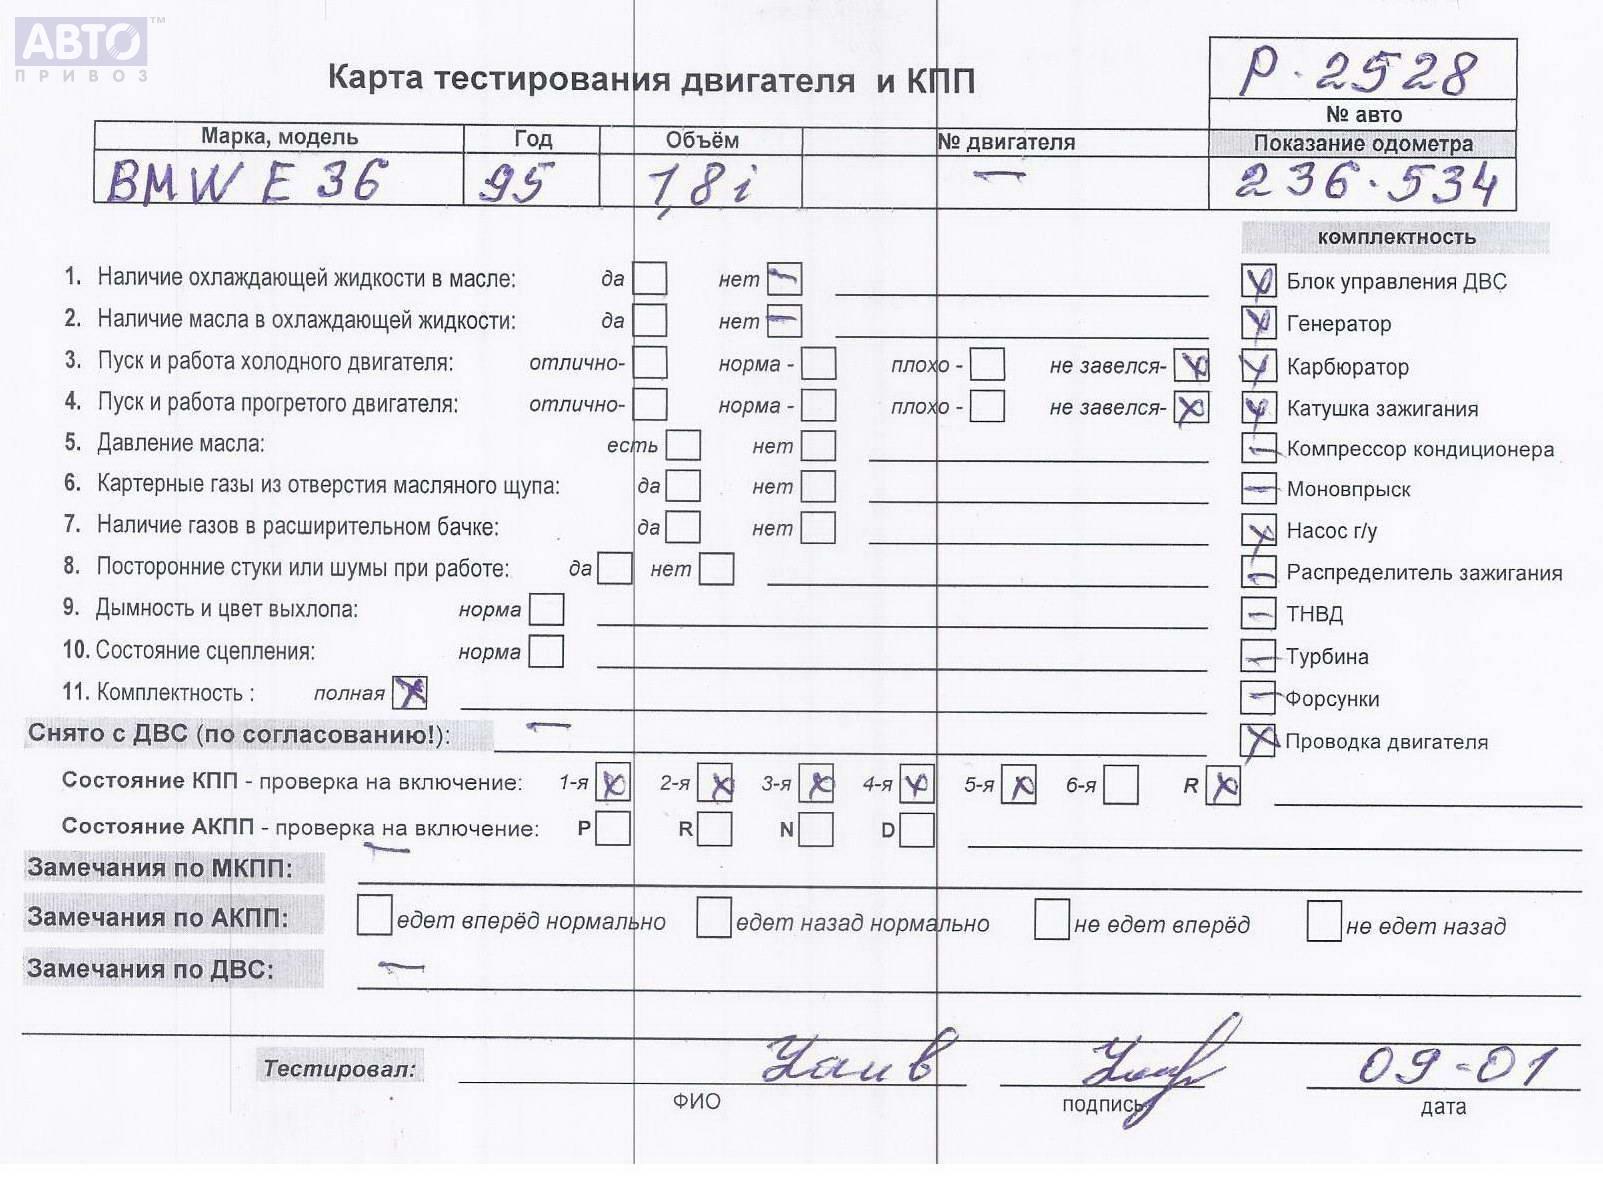 АВТО™
ПРИВОЗ
Карта тестирования двигателя и КПП
Р-2528
№ авто
Марка, модель Год Объём № двигателя Показание одометра
BMW E 36 95 1,8i — 236.534
комплектность
1. Наличие охлаждающей жидкости в масле: да нет Блок управления ДВС
2. Наличие масла в охлаждающей жидкости: да нет Генератор
3. Пуск и работа холодного двигателя: отлично- норма - плохо - не завелся- Карбюратор
4. Пуск и работа прогретого двигателя: отлично- норма - плохо - не завелся- Катушка зажигания
5. Давление масла: есть нет Компрессор кондиционера
6. Картерные газы из отверстия масляного щупа: да нет Моновпрыск
7. Наличие газов в расширительном бачке: да нет Насос г/у
8. Посторонние стуки или шумы при работе: да нет Распределитель зажигания
9. Дымность и цвет выхлопа: норма ТНВД
10. Состояние сцепления: норма Турбина
11. Комплектность : полная Форсунки
Снято с ДВС (по согласованию!): — Проводка двигателя
Состояние КПП - проверка на включение: 1-я 2-я 3-я 4-я 5-я 6-я R
Состояние АКПП - проверка на включение: P R N D
Замечания по МКПП: —
Замечания по АКПП: едет вперёд нормально едет назад нормально не едет вперёд не едет назад
Замечания по ДВС: —
Тестировал: 09-01
ФИО подпись дата